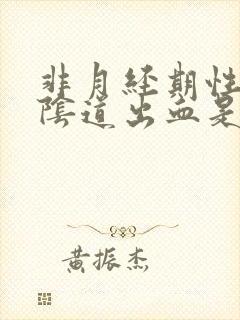 非月經期性
陰道出血是
黃振杰